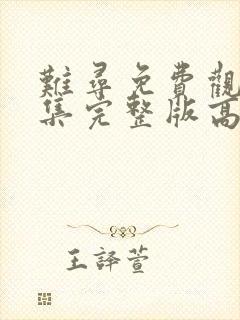 難尋免費觀
集完整版高
王譯萱